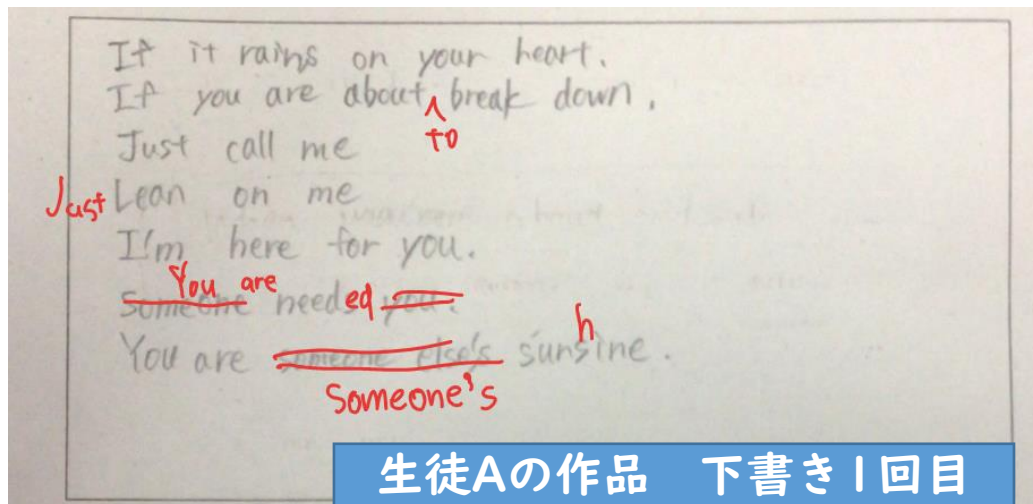 If it rains on your heart.
If you are about break down.
to
Just call me
Just Lean on me
I'm here for you.
You are
Someone needs ed you.
h
You are someone else's sunsine.
Someone's
生徒Aの作品 下書き1回目